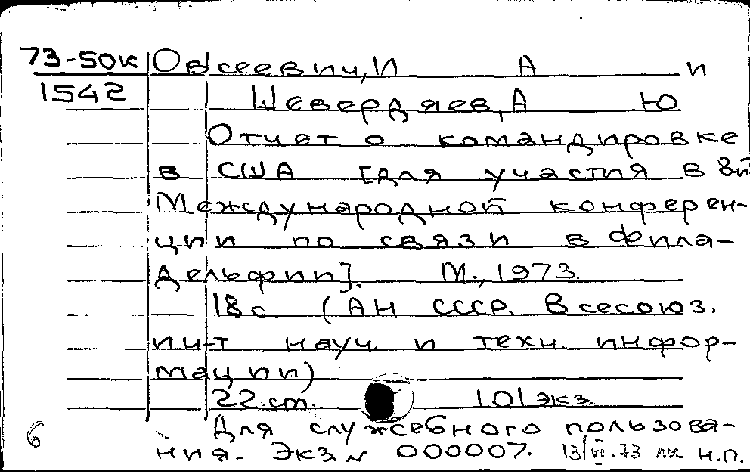 73-50к Овсеевич, И А и
1542 Шевердяев, А Ю
Отчет о командировке
в США [для участия в 8й
Международной конферен-
ции по связи в Фила-
дельфии]. М., 1973.
18с (АН СССР. Всесоюз.
ин-т науч. и техн. инфор-
мации)
22 см. 101 экз.
Для служебного пользова-
6 ния. Экз № 000007. 13/VI.73 н.п.